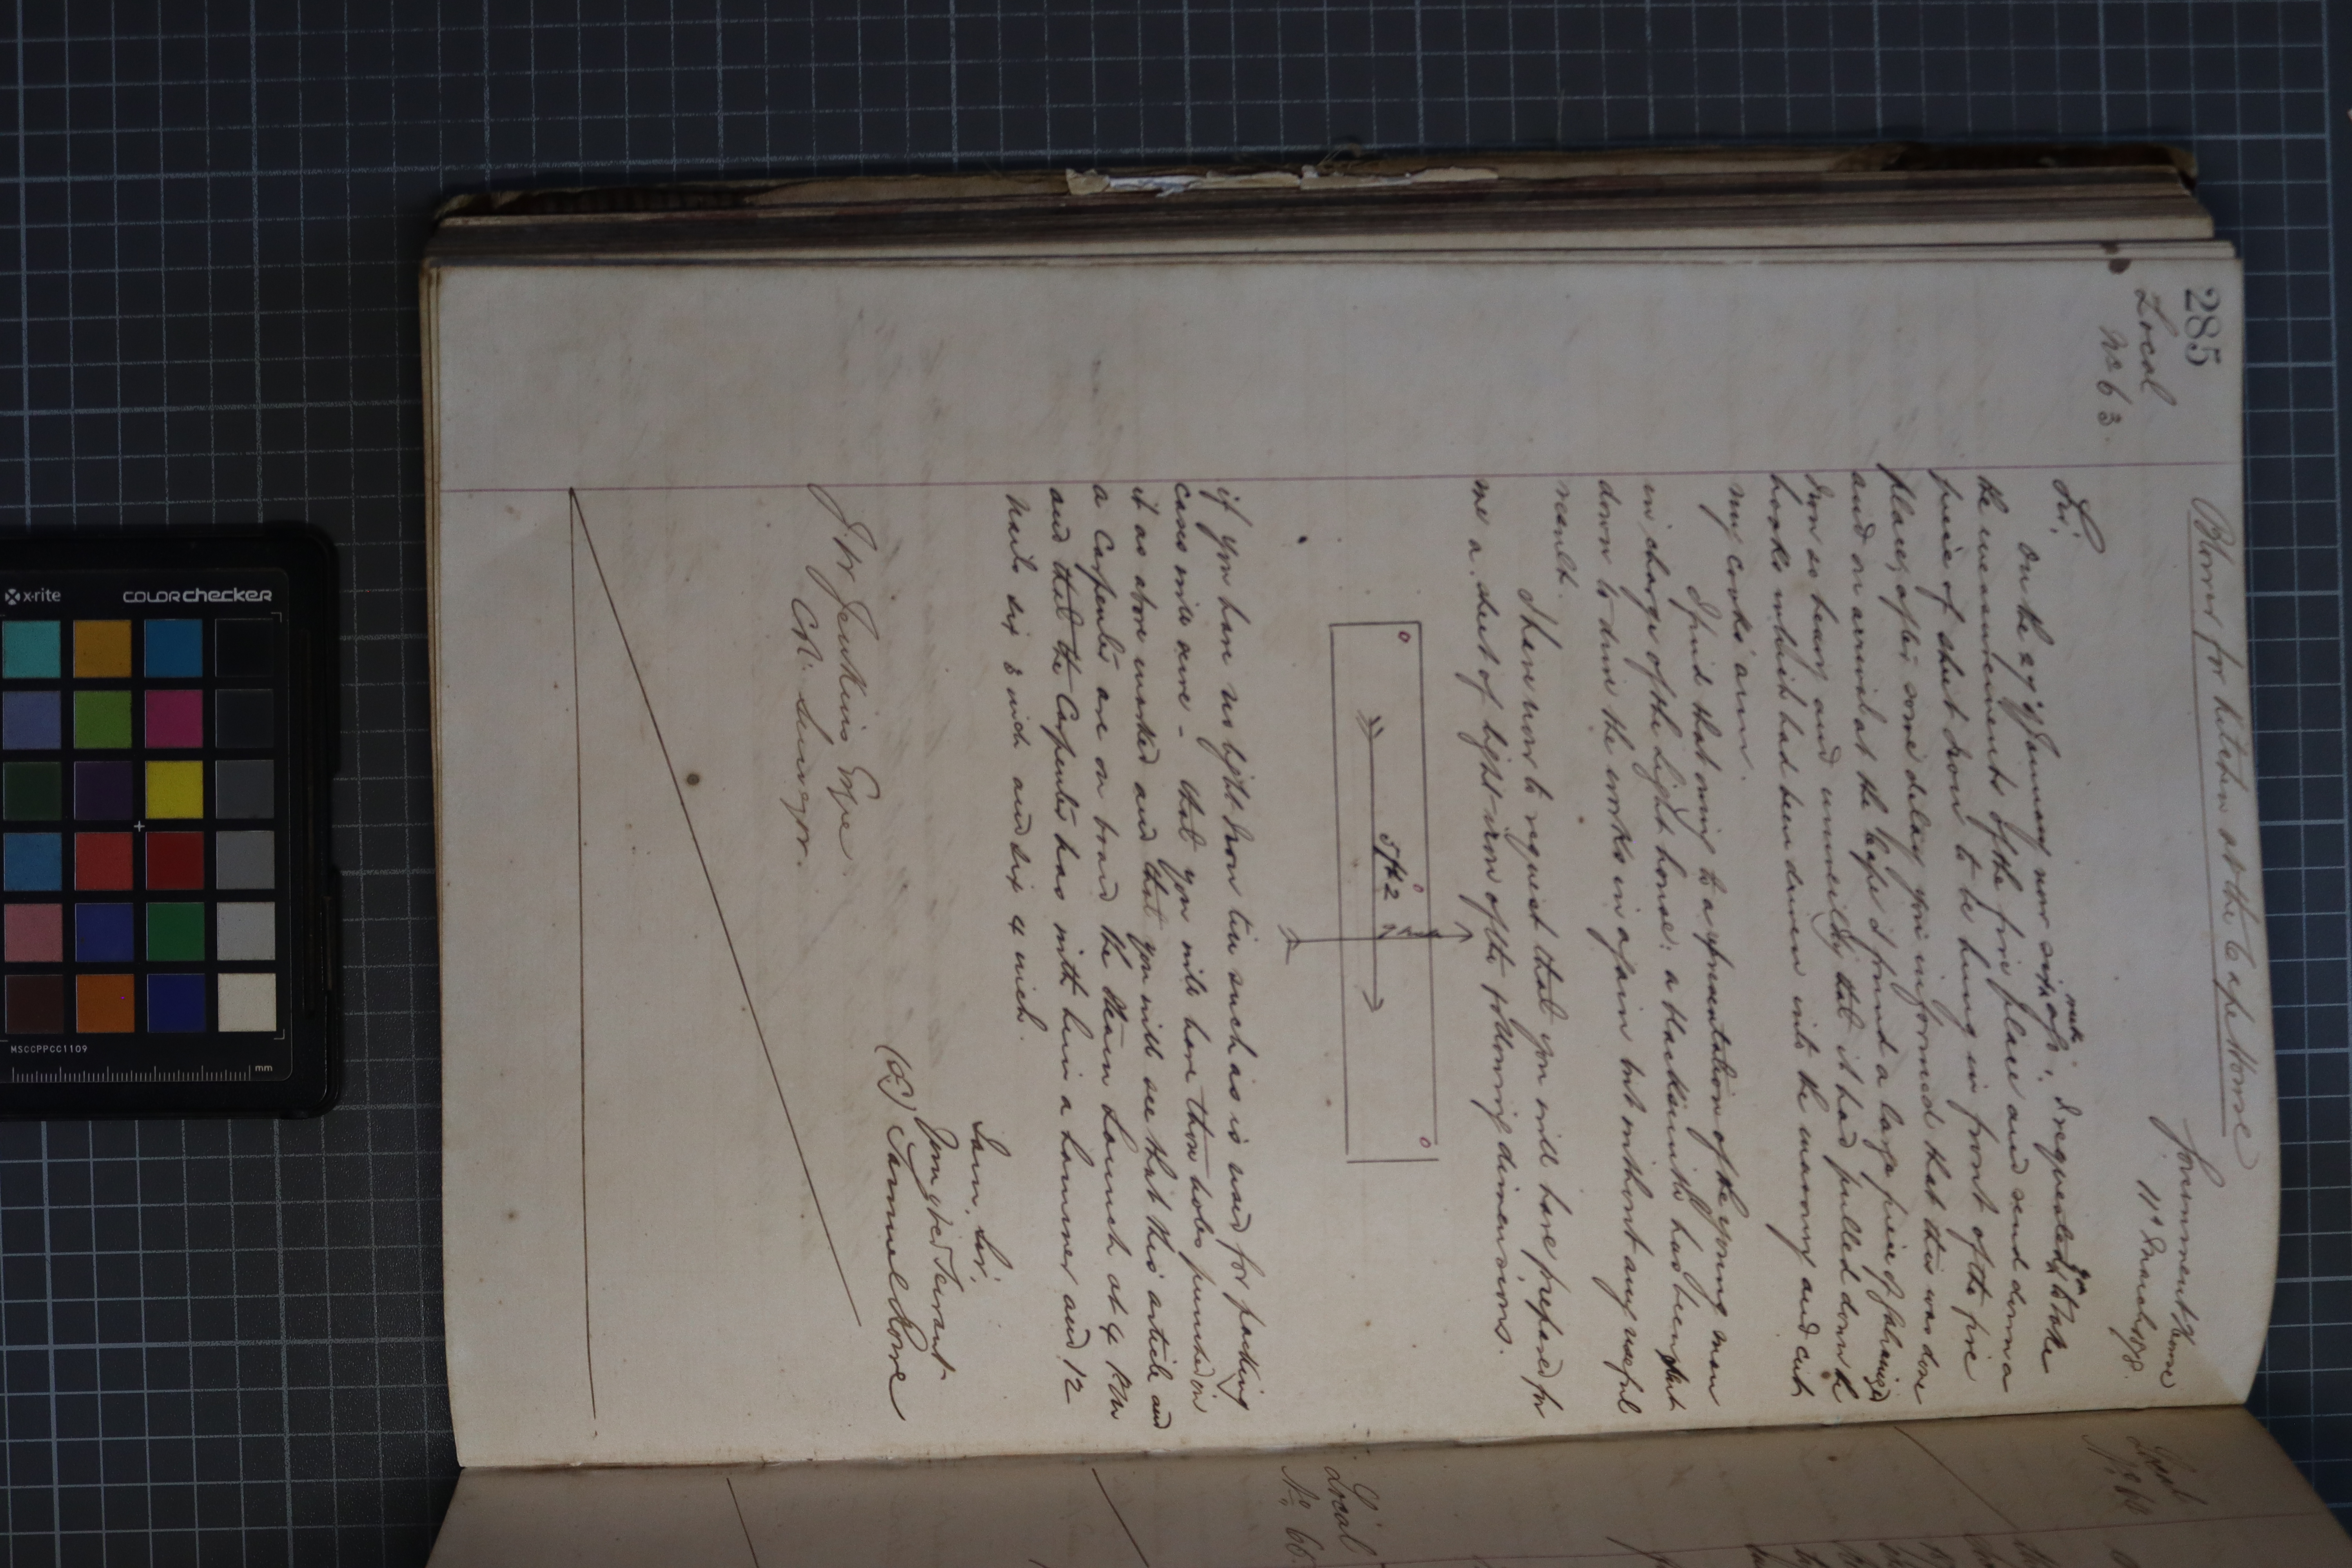 285
Local
No 63.
Blower for Kitchen at the Cape House
Government House
11th March 1878.
Sir,
On the 29th of January now six weeks ago, I requested you to take
the measurements of the fire place and send down a
piece of sheet iron to be hung in front of the fire
place, after some delay you informed that this was done
and on arrival at the Cape I found a large piece of galvanized
Iron so heavy and unwieldy that it had pulled down the
hooks which had been driven into the masonry and cut
my cook's arm.
I find that owing to a representation of the young man
in charge of the Light house; a blacksmith has been sent
down to drive the hooks in again but without any useful
result.
I have now to request that you will have prepared for
me a sheet of light iron of the following dimensions.
5 ft 2
if you have no light iron tin such as is used for packing
cases will serve - that you will have three holes punched in
it as above marked and that you will see that this article and
a Carpenter are on board the Steam Launch at 4 P.M
and that the Carpenter has with him a hammer and 12
nails six 3 inch and six 4 inch.
I am, Sir,
Your obed Servant
(Sd) Samuel Rowe
J. W. Jenkins Esqre
Col. Surveyor.
Local
No 66.